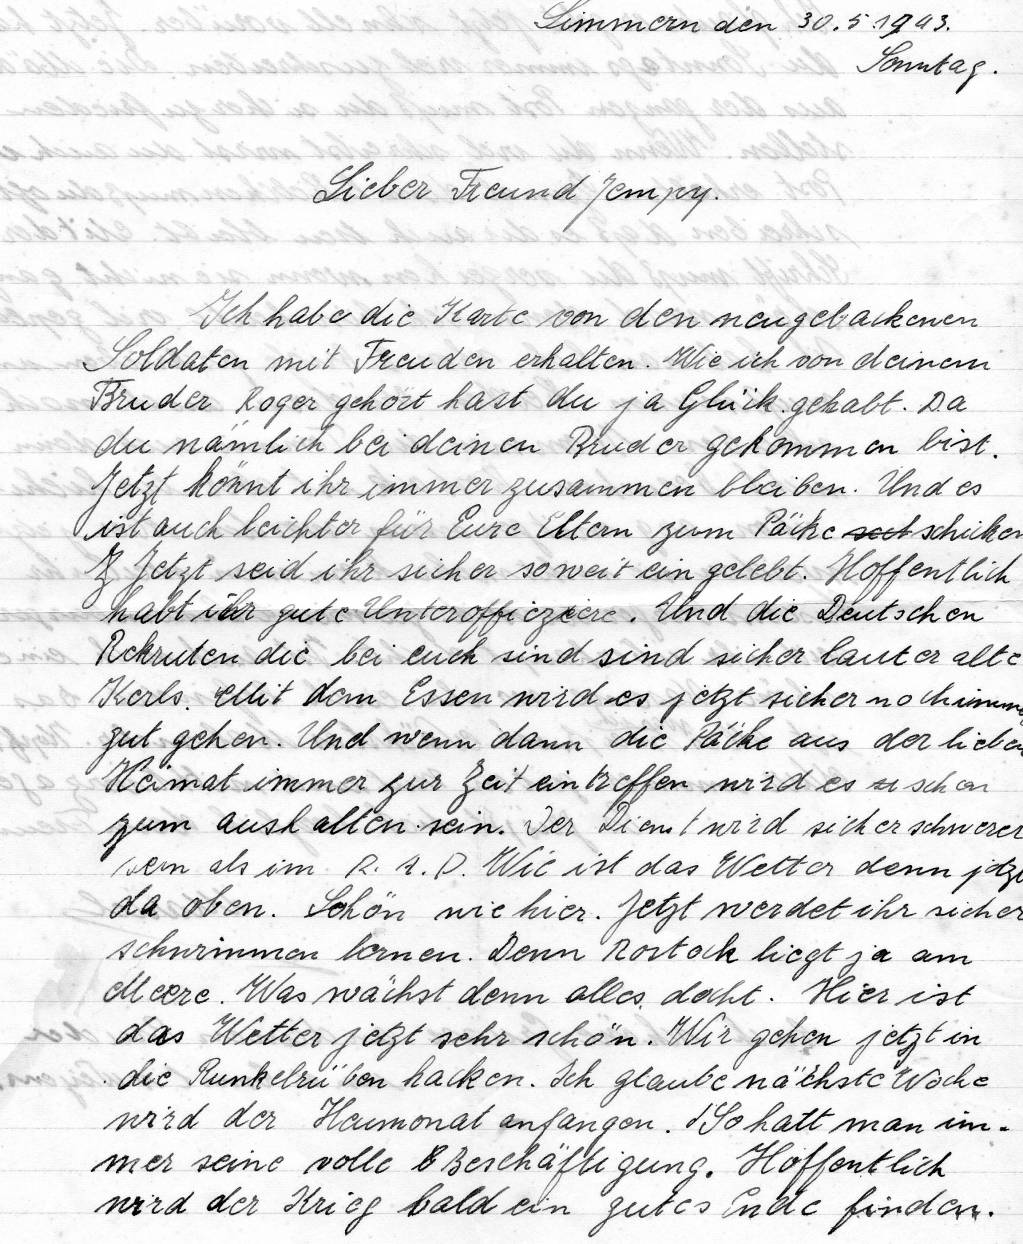 Simmern den 30.5.1943.
Sonntag.
Lieber Freund Jempy.
Ich habe die Karte von den neugebackenen
Soldaten mit Freuden erhalten. Wie ich von deinem
Bruder Roger gehört hast du ja Glück gehabt. Da
du nämlich bei deinen Bruder gekommen bist.
Jetzt könnt ihr immer zusammen bleiben. Und es
ist auch leichter für Eure Eltern zum Päcke schicken
Jetzt seid ihr sicher soweit eingelebt. Hoffentlich
habt ihr gute Unterofficziere. Und die Deutschen
Rekruten die bei euch sind sind sicher lauter alte
Kerls. Mit dem Essen wird es jetzt sicher noch immer
gut gehen. Und wenn dann die Päcke aus der lieben
Heimat immer zur Zeit eintreffen wird es schon
zum aushalten sein. Der Dienst wird sicher schwerer
sein als im R.A.D. Wie ist das Wetter denn jetzt
da oben. Schön wie hier. Jetzt werdet ihr sicher
schwimmen lernen. Denn Rostock liegt ja am
Meere. Was wächst denn alles doht. Hier ist
das Wetter jetzt sehr schön. Wir gehen jetzt in
die Runkelrüben hacken. Ich glaube nächste Woche
wird der Heumonat anfangen. So hatt man im-
mer seine volle Beschäftigung. Hoffentlich
wird der Krieg bald ein gutes Ende finden.